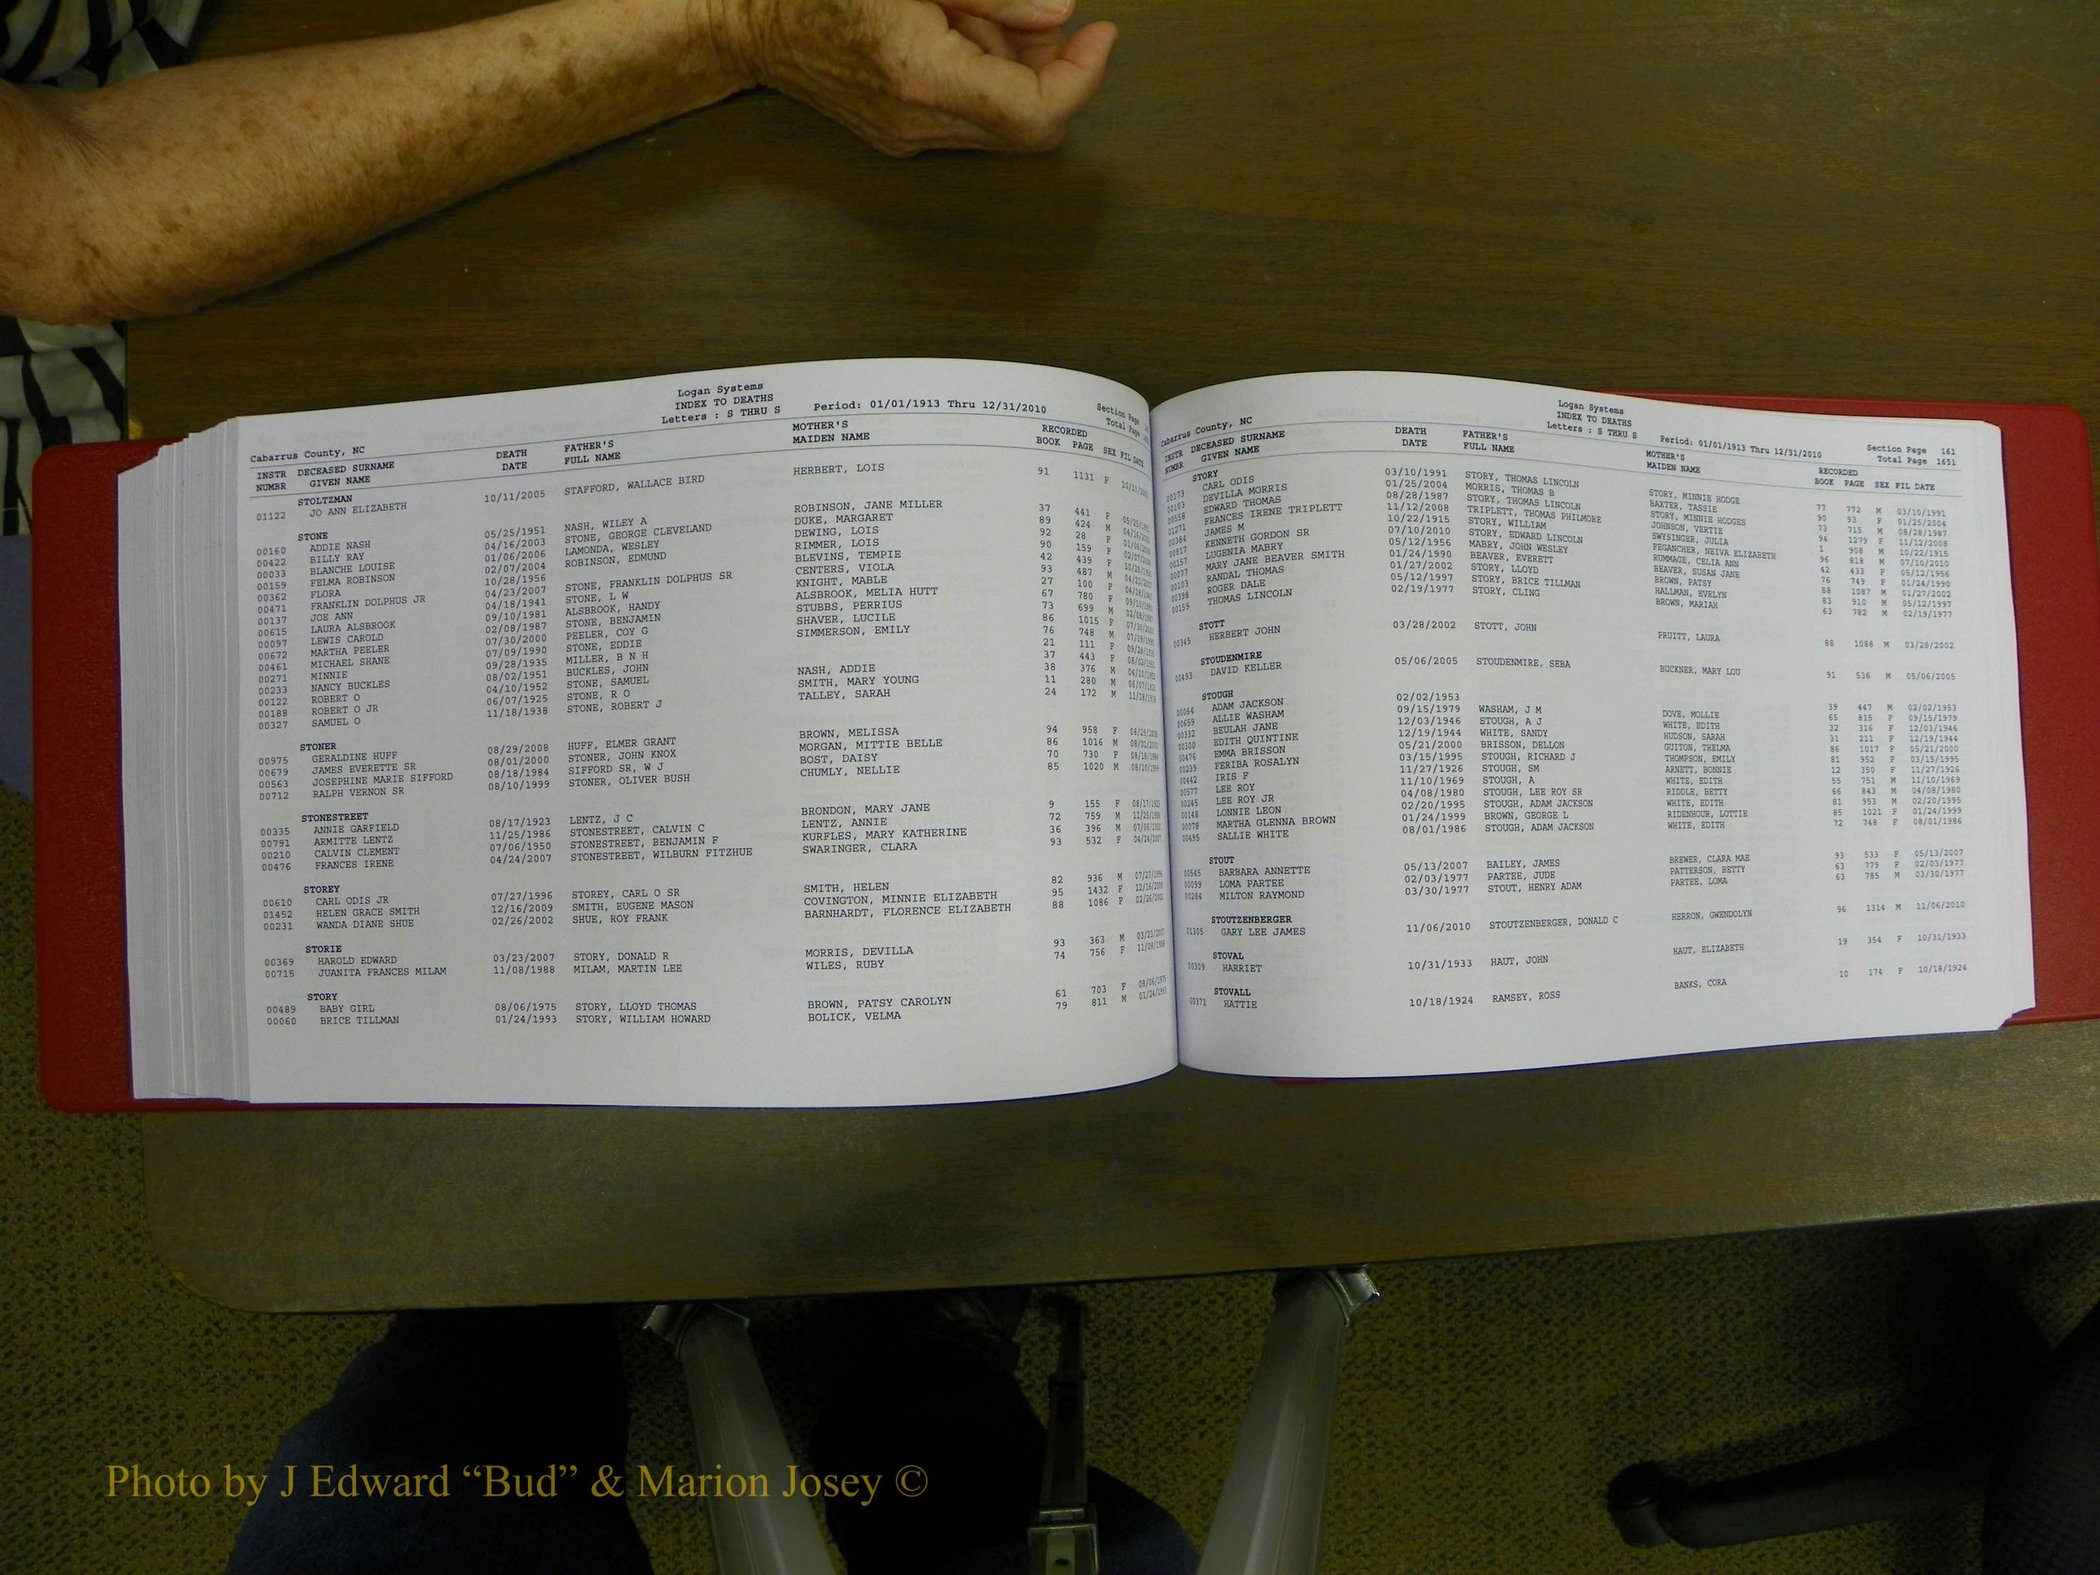 Logan Systems
INDEX TO DEATHS
Letters : S THRU S Period: 01/01/1913 Thru 12/31/2010
Section Page
Total Page
Cabarrus County, NC
INSTR DECEASED SURNAME DEATH FATHER'S MOTHER'S RECORDED
NUMBR GIVEN NAME DATE FULL NAME MAIDEN NAME BOOK PAGE SEX FIL DATE
STOLTZMAN
01122 JO ANN ELIZABETH 10/11/2005 STAFFORD, WALLACE BIRD HERBERT, LOIS 91 1131 F
STONE
00160 ADDIE NASH 05/25/1951 NASH, WILEY A ROBINSON, JANE MILLER 37 441 F
00422 BILLY RAY 04/16/2003 STONE, GEORGE CLEVELAND DUKE, MARGARET 89 424 M
00033 BLANCHE LOUISE 01/06/2006 LAMONDA, WESLEY DEWING, LOIS 92 28 F
00159 FELMA ROBINSON 02/07/2004 ROBINSON, EDMUND RIMMER, LOIS 90 159 F
00362 FLORA 10/28/1956 BLEVINS, TEMPIE 42 439 F
00471 FRANKLIN DOLPHUS JR 04/23/2007 STONE, FRANKLIN DOLPHUS SR CENTERS, VIOLA 93 487 M
00137 JOE ANN 04/18/1941 STONE, L W KNIGHT, MABLE 27 100 F
00615 LAURA ALSBROOK 09/10/1981 ALSBROOK, HANDY ALSBROOK, MELIA HUTT 67 780 F
00097 LEWIS CAROLD 02/08/1987 STONE, BENJAMIN STUBBS, PERRIUS 73 699 M
00672 MARTHA PEELER 07/30/2000 PEELER, COY G SHAVER, LUCILE 86 1015 F
00461 MICHAEL SHANE 07/09/1990 STONE, EDDIE SIMMERSON, EMILY 76 748 M
00271 MINNIE 09/28/1935 MILLER, B N H 21 111 F
00233 NANCY BUCKLES 08/02/1951 BUCKLES, JOHN 37 443 F
00122 ROBERT O 04/10/1952 STONE, SAMUEL NASH, ADDIE 38 376 M
00188 ROBERT O JR 06/07/1925 STONE, R O SMITH, MARY YOUNG 11 280 M
00327 SAMUEL O 11/18/1938 STONE, ROBERT J TALLEY, SARAH 24 172 M 11/18/1938
STONER
00975 GERALDINE HUFF 08/29/2008 HUFF, ELMER GRANT BROWN, MELISSA 94 958 F 08/29/2008
00679 JAMES EVERETTE SR 08/01/2000 STONER, JOHN KNOX MORGAN, MITTIE BELLE 86 1016 M 08/01/2000
00563 JOSEPHINE MARIE SIFFORD 08/18/1984 SIFFORD SR, W J BOST, DAISY 70 730 F 08/18/1984
00712 RALPH VERNON SR 08/10/1999 STONER, OLIVER BUSH CHUMLY, NELLIE 85 1020 M 08/10/1999
STONESTREET
00335 ANNIE GARFIELD 08/17/1923 LENTZ, J C BRONDON, MARY JANE 9 155 F 08/17/1923
00791 ARMITTE LENTZ 11/25/1986 STONESTREET, CALVIN C LENTZ, ANNIE 72 759 M 11/25/1986
00210 CALVIN CLEMENT 07/06/1950 STONESTREET, BENJAMIN F KURFLES, MARY KATHERINE 36 396 M 07/06/1950
00476 FRANCES IRENE 04/24/2007 STONESTREET, WILBURN FITZHUE SWARINGER, CLARA 93 532 F 04/24/2007
STOREY
00610 CARL ODIS JR 07/27/1996 STOREY, CARL O SR SMITH, HELEN 82 936 M 07/27/1996
01452 HELEN GRACE SMITH 12/16/2009 SMITH, EUGENE MASON COVINGTON, MINNIE ELIZABETH 95 1432 F 12/16/2009
00231 WANDA DIANE SHUE 02/26/2002 SHUE, ROY FRANK BARNHARDT, FLORENCE ELIZABETH 88 1086 F 02/26/2002
STORIE
00369 HAROLD EDWARD 03/23/2007 STORY, DONALD R MORRIS, DEVILLA 93 363 M 03/23/2007
00715 JUANITA FRANCES MILAM 11/08/1988 MILAM, MARTIN LEE WILES, RUBY 74 756 F 11/08/1988
STORY
00489 BABY GIRL 08/06/1975 STORY, LLOYD THOMAS BROWN, PATSY CAROLYN 61 703 F 08/06/1975
00060 BRICE TILLMAN 01/24/1993 STORY, WILLIAM HOWARD BOLICK, VELMA 79 811 M 01/24/1993
Logan Systems
INDEX TO DEATHS
Letters : S THRU S Period: 01/01/1913 Thru 12/31/2010
Section Page 161
Total Page 1651
Cabarrus County, NC
INSTR DECEASED SURNAME DEATH FATHER'S MOTHER'S RECORDED
NUMBR GIVEN NAME DATE FULL NAME MAIDEN NAME BOOK PAGE SEX FIL DATE
STORY
00173 CARL ODIS 03/10/1991 STORY, THOMAS LINCOLN STORY, MINNIE HODGE 77 772 M 03/10/1991
00103 DEVILLA MORRIS 01/25/2004 MORRIS, THOMAS B BAXTER, TASSIE 90 93 F 01/25/2004
00558 EDWARD THOMAS 08/28/1987 STORY, THOMAS LINCOLN STORY, MINNIE HODGES 73 715 M 08/28/1987
01271 FRANCES IRENE TRIPLETT 11/12/2008 TRIPLETT, THOMAS PHILMORE JOHNSON, VERTIE 94 1279 F 11/12/2008
00384 JAMES M 10/22/1915 STORY, WILLIAM SWYSINGER, JULIA 1 908 M 10/22/1915
00817 KENNETH GORDON SR 07/10/2010 STORY, EDWARD LINCOLN FEGANCHER, NEIVA ELIZABETH 96 818 M 07/10/2010
00157 LUGENIA MABRY 05/12/1956 MABRY, JOHN WESLEY RUMMAGE, CELIA ANN 42 433 F 05/12/1956
00077 MARY JANE BEAVER SMITH 01/24/1990 BEAVER, EVERETT BEAVER, SUSAN JANE 76 749 F 01/24/1990
00103 RANDAL THOMAS 01/27/2002 STORY, LLOYD BROWN, PATSY 88 1087 M 01/27/2002
00398 ROGER DALE 05/12/1997 STORY, BRICE TILLMAN HALLMAN, EVELYN 83 910 M 05/12/1997
00159 THOMAS LINCOLN 02/19/1977 STORY, CLING BROWN, MARIAH 63 782 M 02/19/1977
STOTT
00345 HERBERT JOHN 03/28/2002 STOTT, JOHN PRUITT, LAURA 88 1088 M 03/28/2002
STOUDENMIRE
00493 DAVID KELLER 05/06/2005 STOUDENMIRE, SEBA BUCKNER, MARY LOU 91 536 M 05/06/2005
STOUGH
00064 ADAM JACKSON 02/02/1953 39 447 M 02/02/1953
00659 ALLIE WASHAM 09/15/1979 WASHAM, J M DOVE, MOLLIE 65 815 F 09/15/1979
00332 BEULAH JANE 12/03/1946 STOUGH, A J WHITE, EDITH 32 316 F 12/03/1946
00300 EDITH QUINTINE 12/19/1944 WHITE, SANDY HUDSON, SARAH 31 211 F 12/19/1944
00476 EMMA BRISSON 05/21/2000 BRISSON, DELLON GUITON, THELMA 86 1017 F 05/21/2000
00239 FERIBA ROSALYN 03/15/1995 STOUGH, RICHARD J THOMPSON, EMILY 81 952 F 03/15/1995
00442 IRIS F 11/27/1926 STOUGH, SM ARNETT, BONNIE 12 350 F 11/27/1926
00577 LEE ROY 11/10/1969 STOUGH, A WHITE, EDITH 55 751 M 11/10/1969
00245 LEE ROY JR 04/08/1980 STOUGH, LEE ROY SR RIDDLE, BETTY 66 843 M 04/08/1980
00148 LONNIE LEON 02/20/1995 STOUGH, ADAM JACKSON WHITE, EDITH 81 953 M 02/20/1995
00078 MARTHA GLENNA BROWN 01/24/1999 BROWN, GEORGE L RIDENHOUR, LOTTIE 85 1021 F 01/24/1999
00495 SALLIE WHITE 08/01/1986 STOUGH, ADAM JACKSON WHITE, EDITH 72 748 F 08/01/1986
STOUT
00545 BARBARA ANNETTE 05/13/2007 BAILEY, JAMES BREWER, CLARA MAE 93 533 F 05/13/2007
00099 LOMA PARTEE 02/03/1977 PARTEE, JUDE PATTERSON, BETTY 63 779 F 02/03/1977
00284 MILTON RAYMOND 03/30/1977 STOUT, HENRY ADAM PARTEE, LOMA 63 785 M 03/30/1977
STOUTZENBERGER
01305 GARY LEE JAMES 11/06/2010 STOUTZENBERGER, DONALD C HERRON, GWENDOLYN 96 1314 M 11/06/2010
STOVAL
00309 HARRIET 10/31/1933 HAUT, JOHN HAUT, ELIZABETH 19 354 F 10/31/1933
STOVALL
00371 HATTIE 10/18/1924 RAMSEY, ROSS BANKS, CORA 10 174 F 10/18/1924
Photo by J Edward “Bud” & Marion Josey ©